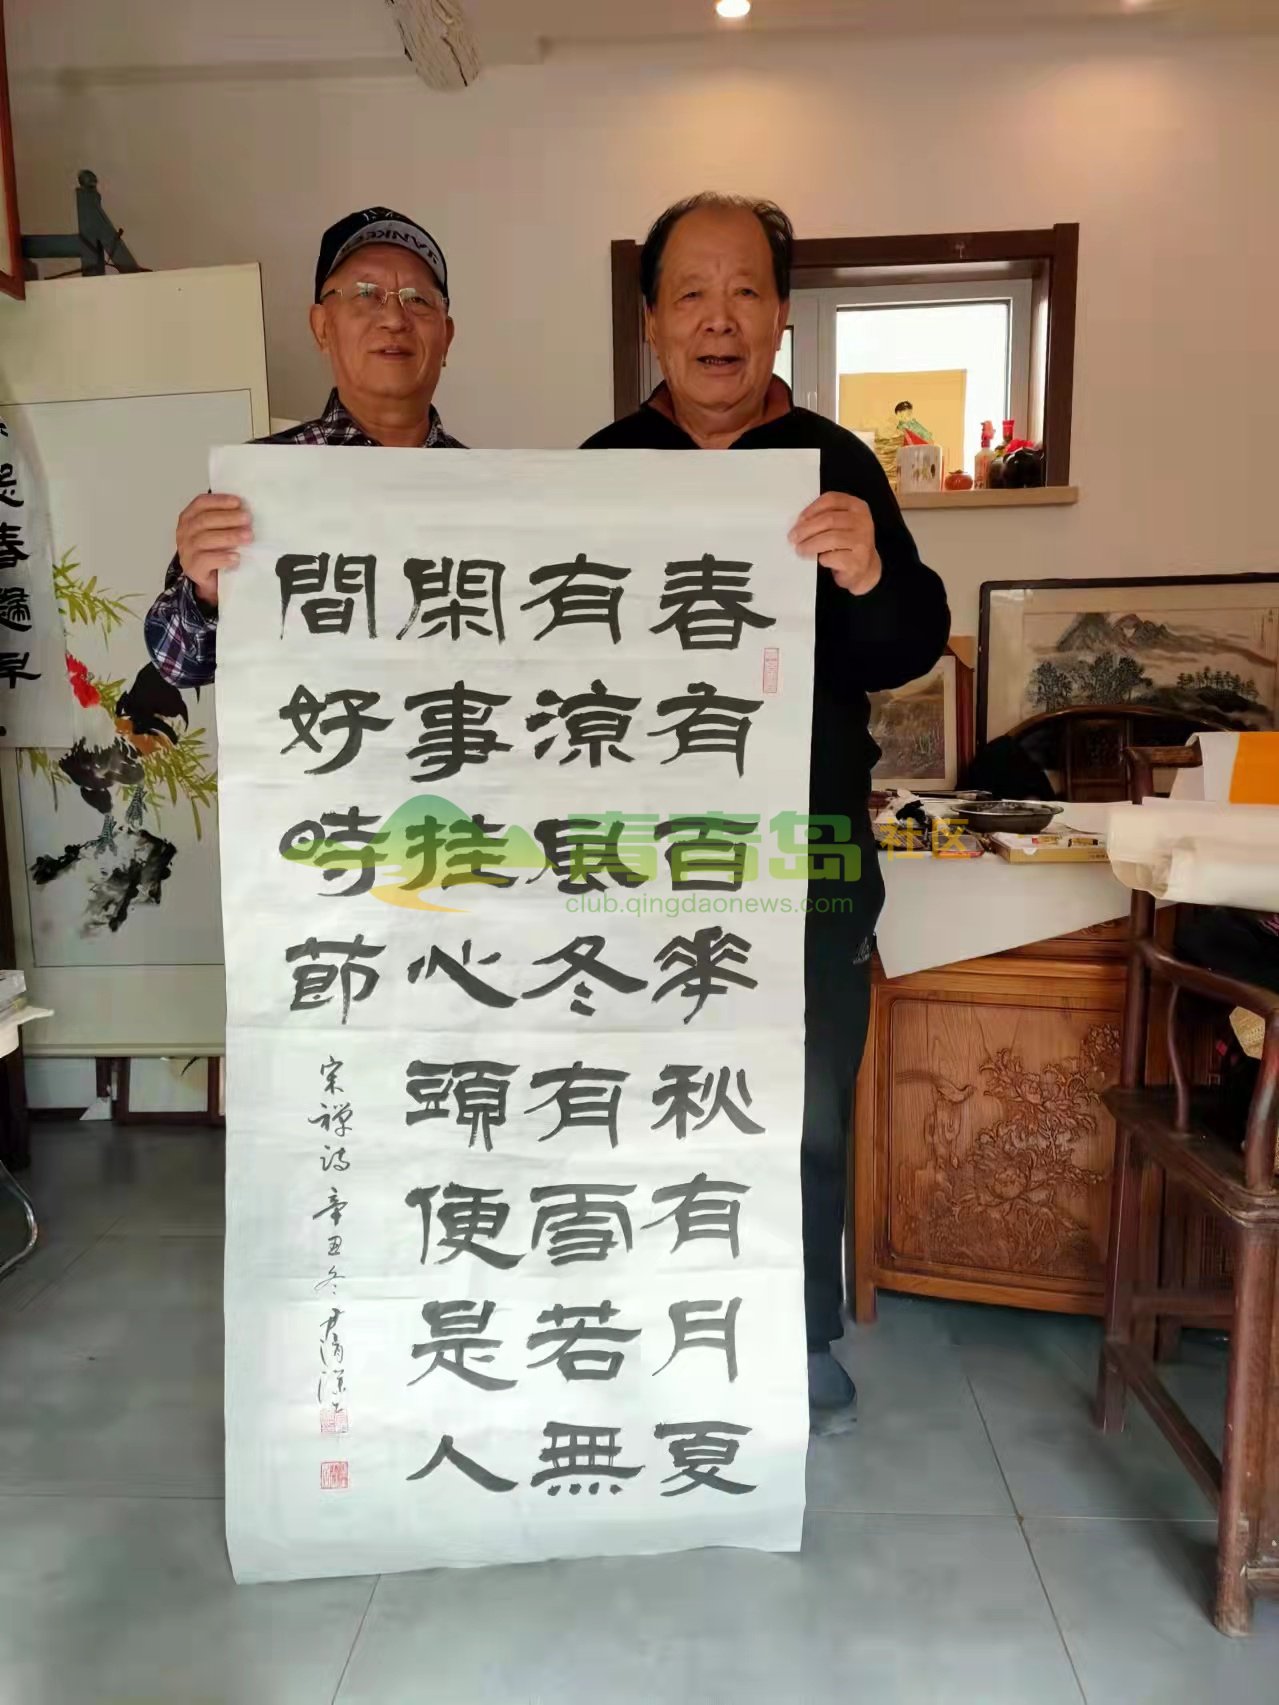 春有百花秋有月夏
有涼風冬有雪若無
閑事挂心頭便是人
間好時節
宋禅诗 辛丑冬
春歸早
青青岛社区
club.qingdaonews.com